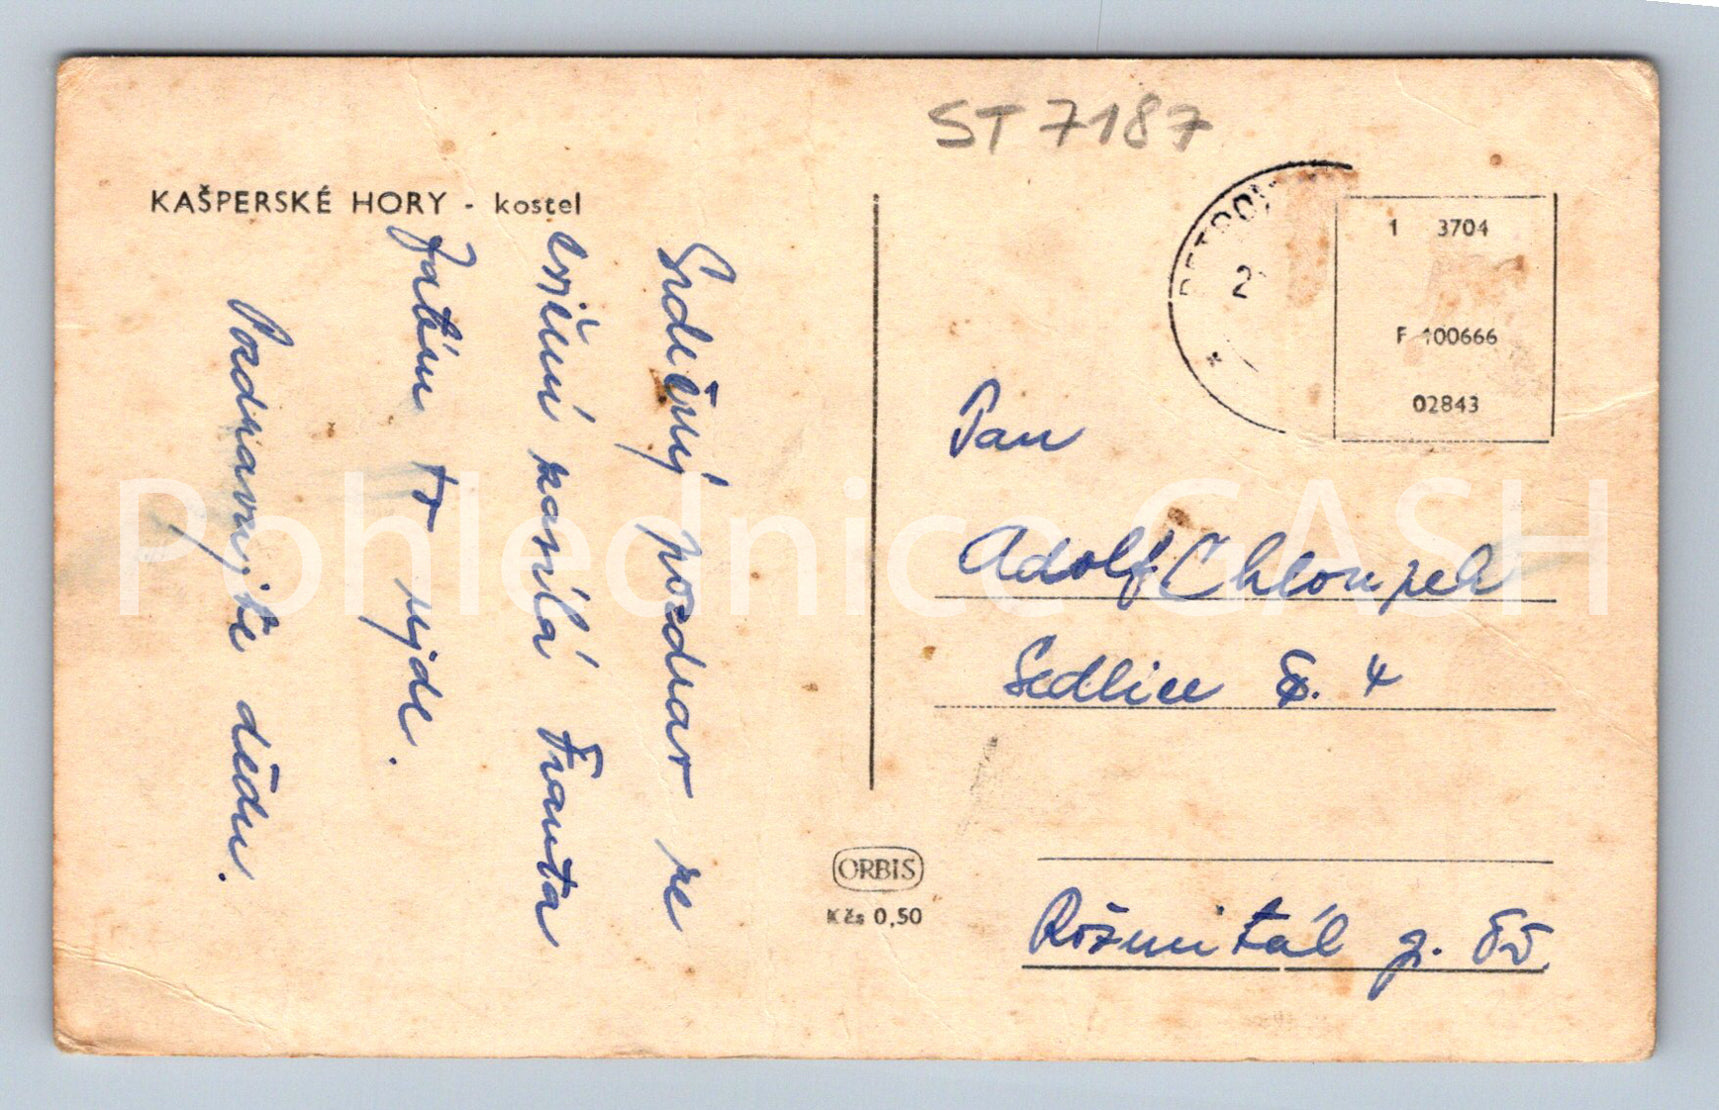 ST 7187
KAŠPERSKÉ HORY - kostel
Srdečný pozdrav ze
cvičení zasílá Franta
Zatím to ujde.
Pozdravujte dědu.
1 3704
F 100666
02843
Pan
Adolf Chloupek
Sedlice č. 4
Rožmitál p. Tř.
ORBIS
Kčs 0,50
Pohlednice GASH